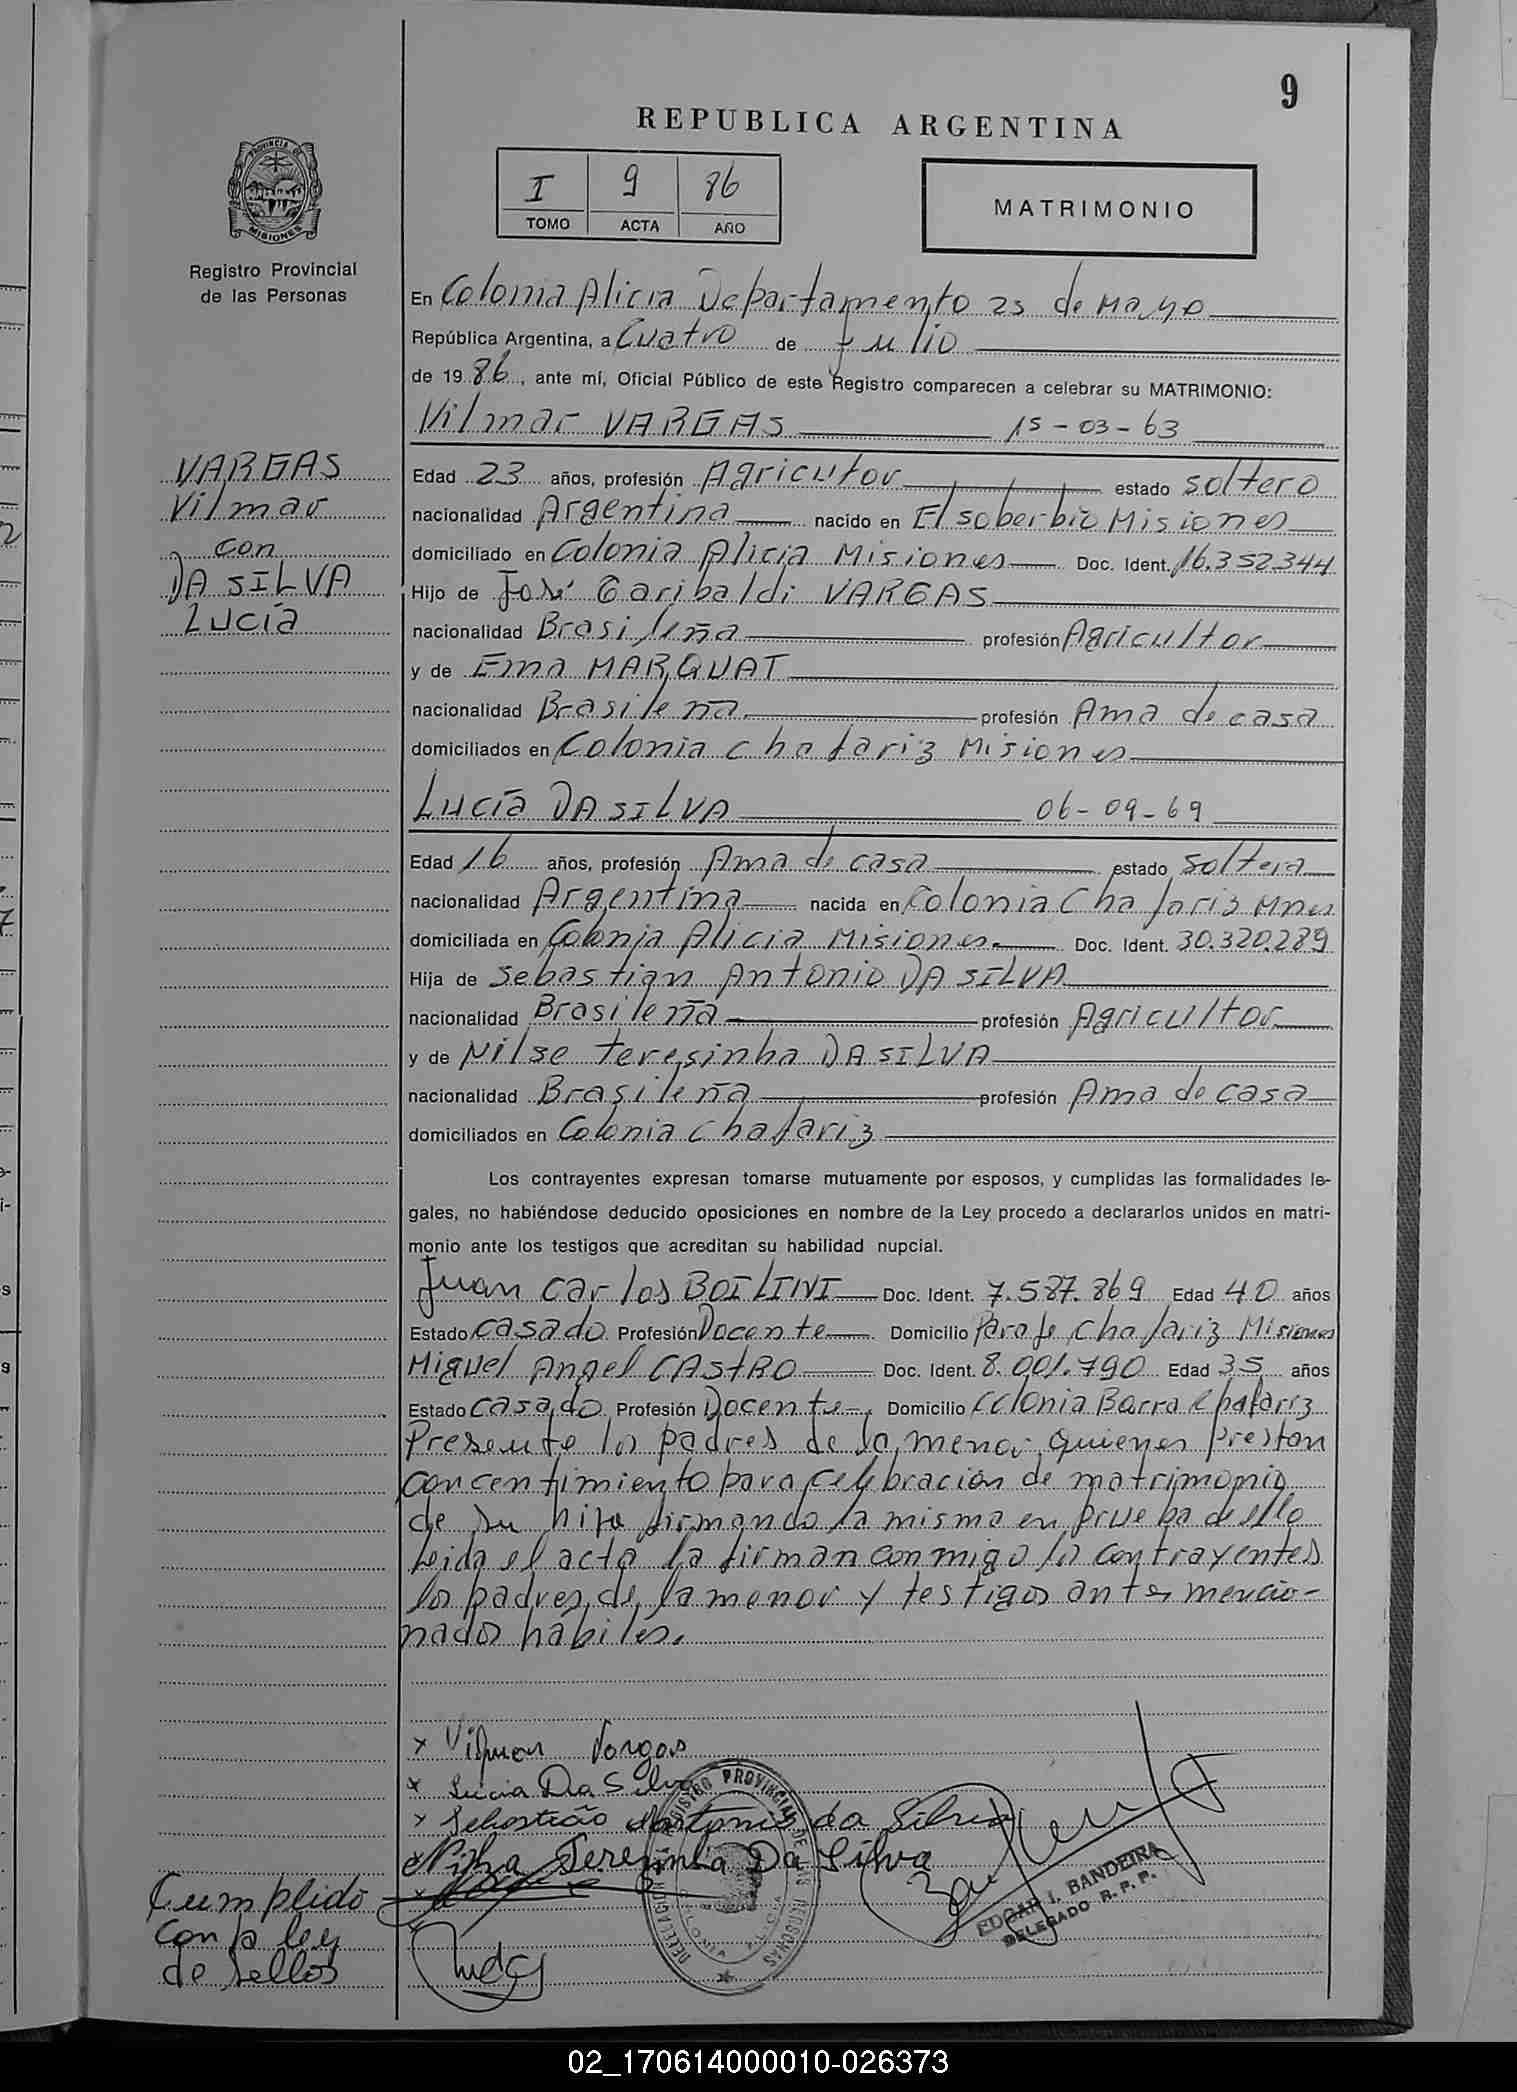 9
REPUBLICA ARGENTINA
PROVINCIA DE
MISIONES
Registro Provincial
de las Personas
I 9 86
TOMO ACTA AÑO
MATRIMONIO
En Colonia Alicia Departamento 25 de Mayo
República Argentina, a Cuatro de Julio
de 19 86, ante mí, Oficial Público de este Registro comparecen a celebrar su MATRIMONIO:
Vilmar VARGAS 15-03-63
VARGAS
Vilmar
con
DA SILVA
Lucía
Edad 23 años, profesión Agricutor estado soltero
nacionalidad Argentina nacido en El soberbio Misiones
domiciliado en Colonia Alicia Misiones Doc. Ident. 16.352.344
Hijo de José Garibaldi VARGAS
nacionalidad Brasileña profesión Agricultor
y de Ema MARQUAT
nacionalidad Brasileña profesión Ama de casa
domiciliados en Colonia Chafariz Misiones
Lucía DA SILVA 06-09-69
Edad 16 años, profesión Ama de casa estado soltera
nacionalidad Argentina nacida en Colonia Chafariz Mnes
domiciliada en Colonia Alicia Misiones Doc. Ident. 30.320.289
Hija de Sebastian Antonio DA SILVA
nacionalidad Brasileña profesión Agricultor
y de Nilse Teresinha DA SILVA
nacionalidad Brasileña profesión Ama de casa
domiciliados en Colonia Chafariz
Los contrayentes expresan tomarse mutuamente por esposos, y cumplidas las formalidades le-
gales, no habiéndose deducido oposiciones en nombre de la Ley procedo a declararlos unidos en matri-
monio ante los testigos que acreditan su habilidad nupcial.
Juan Carlos BOILINI Doc. Ident. 7.587.869 Edad 40 años
Estado casado Profesión Docente Domicilio Paraje Chafariz Misiones
Miguel Angel CASTRO Doc. Ident. 8.001.790 Edad 35 años
Estado casado Profesión Docente Domicilio Colonia Barra Chafariz
Presente los padres de la menor quienes prestan
concentimiento para celebración de matrimonio
de su hija firmando la misma en prueba de ello
leida el acta la firman conmigo los contrayentes
los padres de la menor y testigos antes mencio-
nados habiles.
x Vilmar Vargas
x Lucia Da Silva
x Sebastião Antonio da Silva
x Nilza Teresinha Da Silva
REGISTRO PROVINCIAL DE LAS PERSONAS
DELEGACION
COLONIA ALICIA
EDGAR I. BANDEIRA
DELEGADO R. P. P.
Cumplido
con la ley
de sellos
02_170614000010-026373